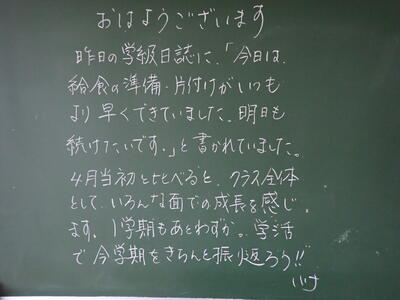 おはようございます
昨日の学級日誌に、「今日は、
給食の準備・片付けがいつも
より早くできていました。明日も
続けたいです。」と書かれていました。
4月当初とくらべると、クラス全体
として、いろんな面での成長を感じ
ます。1学期もあとわずか。学活
で今学期をきちんと振り返ろう!!